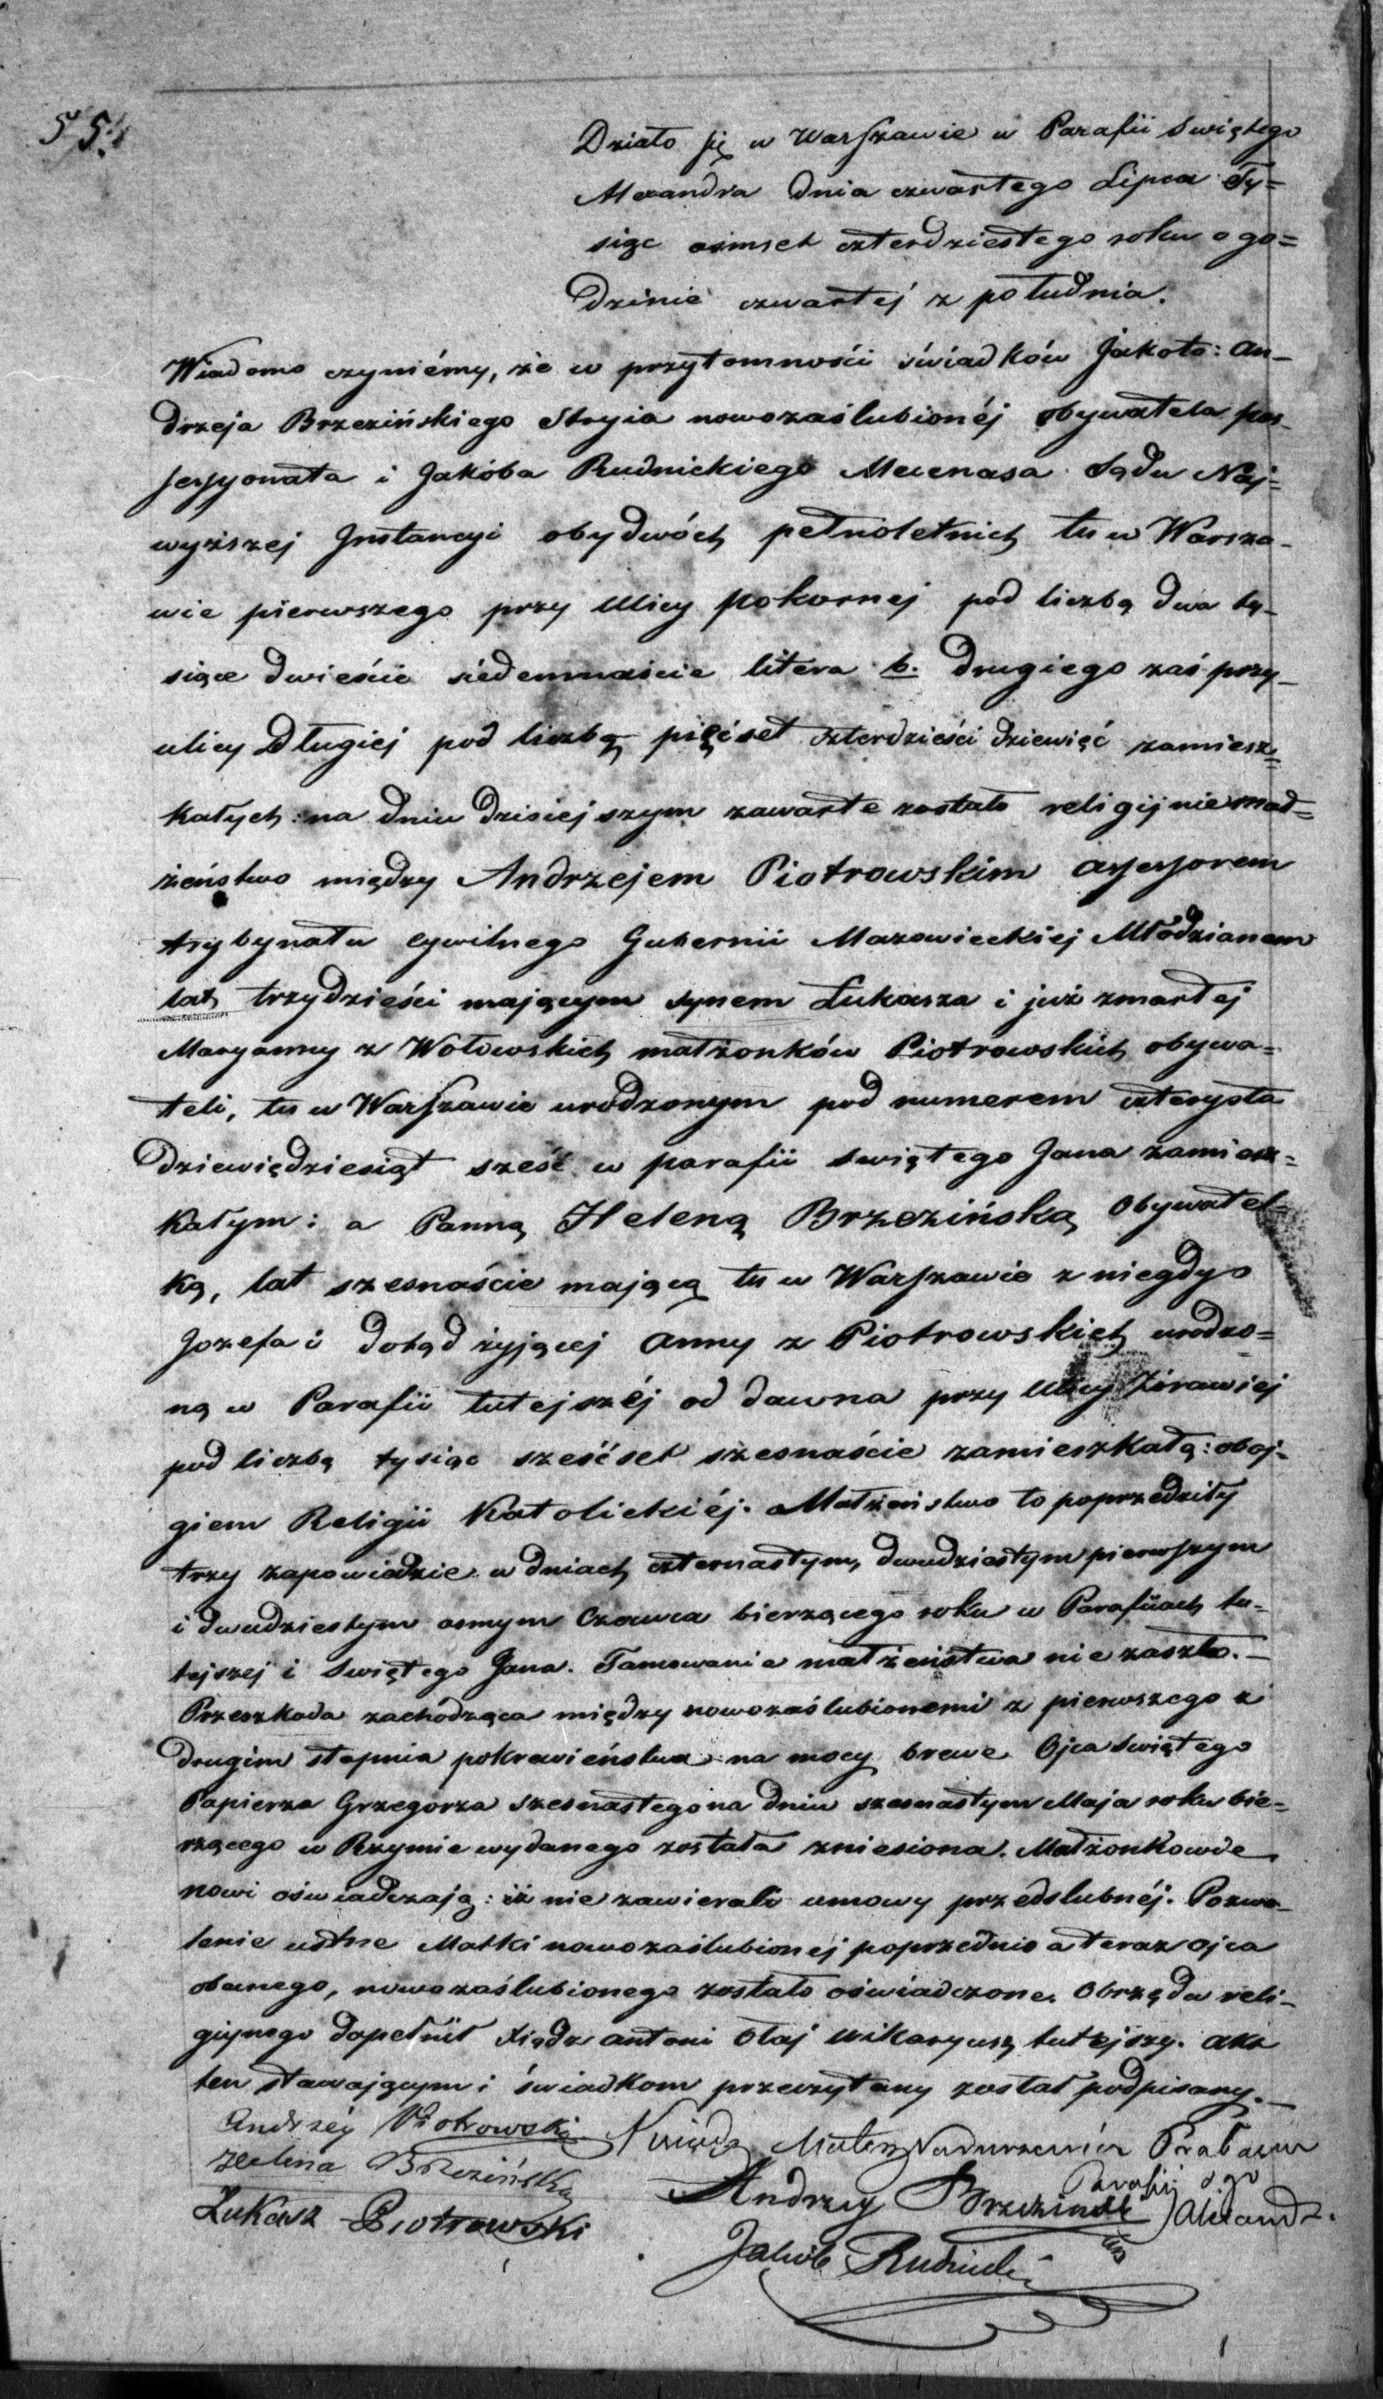 55.
Działo się w Warszawie w Parafii Świętego
Alexandra dnia czwartego Lipca Ty=
siąc ośmset czterdziestego roku o go=
dzinie czwartéj z południa.
Wiadomo czyniémy, że w przytomności świadków Jakoto: An-
drzeja Brzezińskiego Stryia nowozaślubionéj obywatela pos-
sessyonata i Jakóba Rudnickiego Mecenasa Sądu Naj=
wyższej Instancyi obydwóch pełnoletnich tu w Warsza-
wie pierwszego przy Ulicy Pokornej pod liczbą dwa ty-
siące dwieście siedemnaście litera b. drugiego zaś przy-
ulicy Długiej pod liczbą pięćset czterdzieści dziewięć zamiesz=
kałych: na dniu dzisiejszym zawarte zostało religijnie mał=
żeństwo między Andrzejem Piotrowskim Assessorem
trybynału cywilnego Gubernii Mazowieckiej Młodzianem
lat trzydzieści mającym synem Łukasza i już zmarłej
Maryanny z Wołowskich małżonków Piotrowskich obywa=
teli, tu w Warszawie urodzonym pod numerem czterysta
dziewiędziesiąt sześć w parafii Świętego Jana zamiesz=
kałym: a Panną Heleną Brzezińską Obywatel-
ką, lat szesnaście mającą tu w Warszawie z niegdyo
Jozefa i dotąd żyjącej Anny z Piotrowskich urodzo=
ną w Parafii tutejszéj od dawna przy Ulicy Żórawiej
pod liczbą tysiąc sześćset szesnaście zamieszkałą: oboj-
giem Religii Katolickiéj. Małżeństwo to poprzedziły
trzy zapowiedzie w dniach czternastym, dwudziestym pierwszym
i dwudziestym osmym Czerwca bierzącego roku w Parafiach tu-
tejszej i Świętego Jana. Tamowanie małżeństwa nie zaszło.-
Przeszkoda zachodząca między nowozaślubionemi z pierwszego z
drugim stopnia pokrewieństwa na mocy breve Ojca Świętego
Papierza Grzegorza szesnastego na dniu szesnastym Maja roku bie=
rzącego w Rzymie wydanego została zniesiona. Małżonkowie
nowi oświadczają: iż nie zawierali umowy przedślubnéj. Pozwo-
lenie ustne Matki nowozaślubionej poprzednio a teraz ojca
obecnego, nowozaślubionego zostało oświadczone. Obrzędu reli-
gijnego dopełnił Xiądz Antoni Otaj Wikaryusz tutejszy. Akt
ten stawającym i świadkom przeczytany został podpisany.-
Andrzéy Piotrowski
Helena Brzezińska
Łukasz Piotrowski
Ksiądz Proboszcz
Parafii Sgo
Alexandra.
Andrzey Brzezinski
Jakób Rudnicki